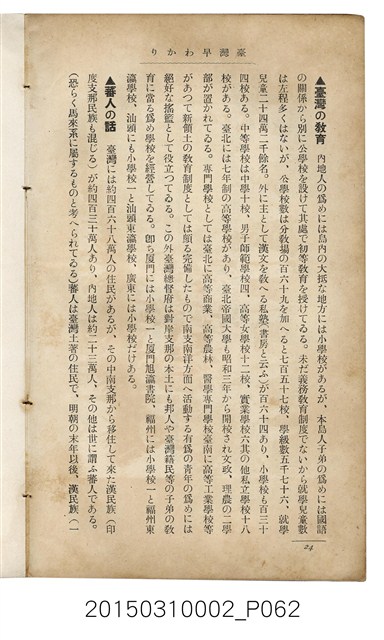 臺灣早わかり
▲臺灣の教育　内地人の爲めには島内の大抵な地方には小學校があるが、本島人子弟の爲めには國語
の關係から別に公學校を設けて其處で初等教育を授けてゐる。未だ義務教育制度でないから就學兒童數
は左程多くはないが、公學校數は分教場の百六十九を加へると七百五十七校、學級數五千七十六、就學
兒童二十四萬二千餘名。外に主として漢文を教へる私塾（書房と云ふ）が百六十四あり、小學校も百三十
四校ある。中等學校は中學十校、男子師範學校四、高等女學校十二校、實業學校六其の他私立學校十八
校がある。臺北には七年制の高等學校があり、臺北帝國大學も昭和三年から開校され文政、理農の二學
部が置かれてゐる。專門學校としては臺北に高等商業、高等農林、醫學專門學校臺南に高等工業學校等
があつて新領土の教育制度としては頗る完備したもので南支南洋方面へ活動する有爲の青年の爲めには
絕好な搖籃として役立つてゐる。この外臺灣總督府は對岸支那の本土にも邦人や臺灣籍民等の子弟の教
育に當る爲め學校を經營してゐる。卽ち厦門には小學校一と厦門旭瀛書院、福州には小學校一と福州東
瀛學校、汕頭にも小學校一と汕頭東瀛學校、廣東には小學校だけある。
▲蕃人の話　臺灣には約四百六十八萬人の住民があるが、その中南支那から移住して來た漢民族（印
度支那民族も混じる）が約四百三十萬人あり、内地人は約二十三萬人、その他は世に謂ふ蕃人である。
（恐らく馬來系に屬するものと考へられてゐる）蕃人は臺灣土著の住民で、明朝の末年以後、漢民族（一
24
20150310002_P062